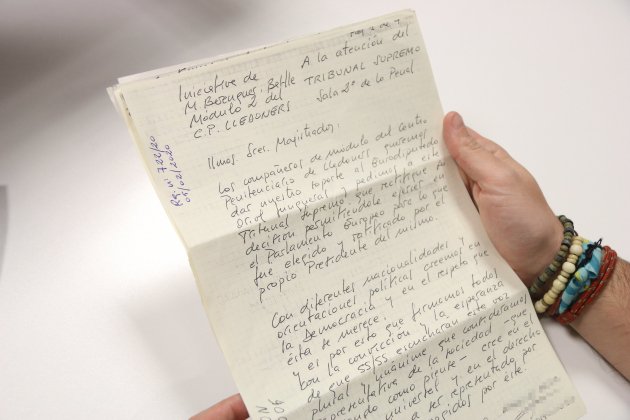 Iniciativa de
M Berenguer, Batlle
Módulo 2 del
C.P. LLEDONERS
A la atención del
TRIBUNAL SUPREMO
Sala 2ª de lo Penal
Reg nº 722/20
05/02/2020
Ilmos Sres. Magistrados,
Los compañeros de módulo del Centro
Penitenciario de Lledoners queremos
dar nuestro soporte al Eurodiputado
Oriol Junqueras y pedimos a este
Tribunal Supremo que rectifique su
decisión permitiéndole ejercer en
el Parlamento Europeo para lo que
fue elegido y ratificado por el
propio Presidente del mismo.
Con diferentes nacionalidades y
orientaciones políticas creemos en
la Democracia y en el respeto que
ésta se merece.
y es por esto que firmamos todos
con la convicción y la esperanza
de que SS/SS escucharán esta voz
plural y unánime que consideramos
representativa de la sociedad - que
como pliente - cree en el
universal y en el derecho
a ser representado por
elegidos por éste.